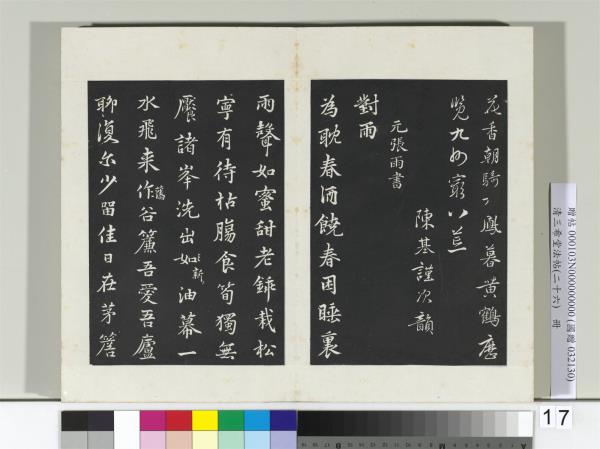 花香朝騎丁鳳暮黃鶴歷
覽九州窮八荒
陳基謹次韻
元張雨書
對雨
為耽春酒饒春困睡裏
雨聲如蜜甜老鈢栽松
寧有待枯腸食筍獨無
饜諸峯洗出如新油幕一
水飛來作舊谷簾吾愛吾廬
聊復尔少留佳日在茅簷
贈帖 000103N000000000 (國贈 032130)
清三希堂法帖(二十六) 冊
17